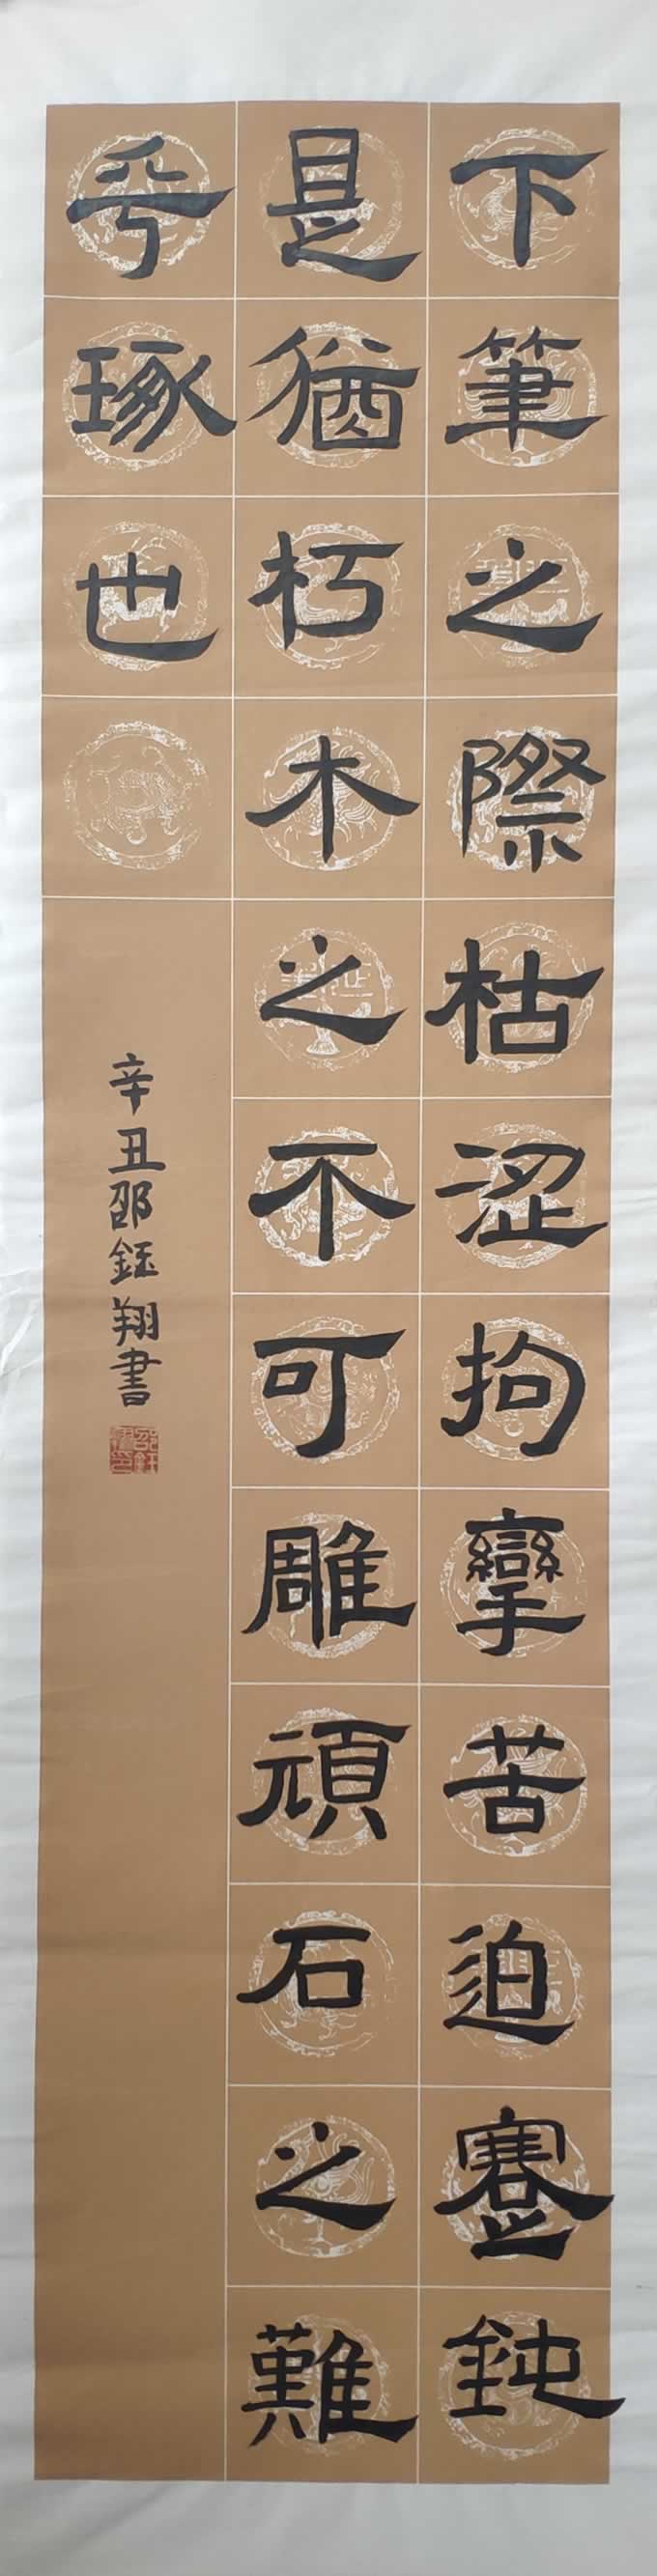 下筆之際枯澀拘攣苦迫蹇鈍
是猶朽木之不可雕頑石之難
乎琢也
辛丑邵鈺翔書